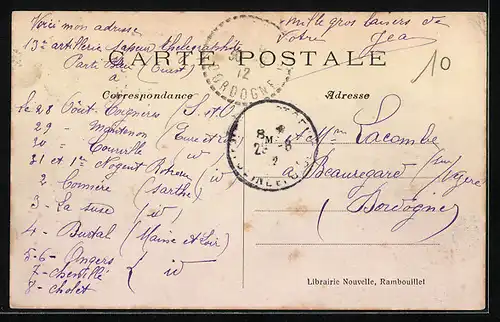 Voici mon adresse
13e artillerie Sapeur thelegraphiste
Parti Bleu (Ouest)
à
mille gros baisers de
votre Jean
CARTE POSTALE
DORDOGNE
12
10
Correspondance
Adresse
le 28 Août Coignères (S. et O)
29 - Maintenon (Eure et L)
30 - Courville (id)
31 et 1er Nogent Rotrou (id)
2 - Connéré (Sarthe)
3 - La suse (id)
4 - Bustal (Maine et Loir)
5-6 - Angers
7 - chemillé (id
8 - cholet
8 M
29 - 8
Mr Lacombe
à Beauregard sur
Vézère
(Dordogne)
Librairie Nouvelle, Rambouillet